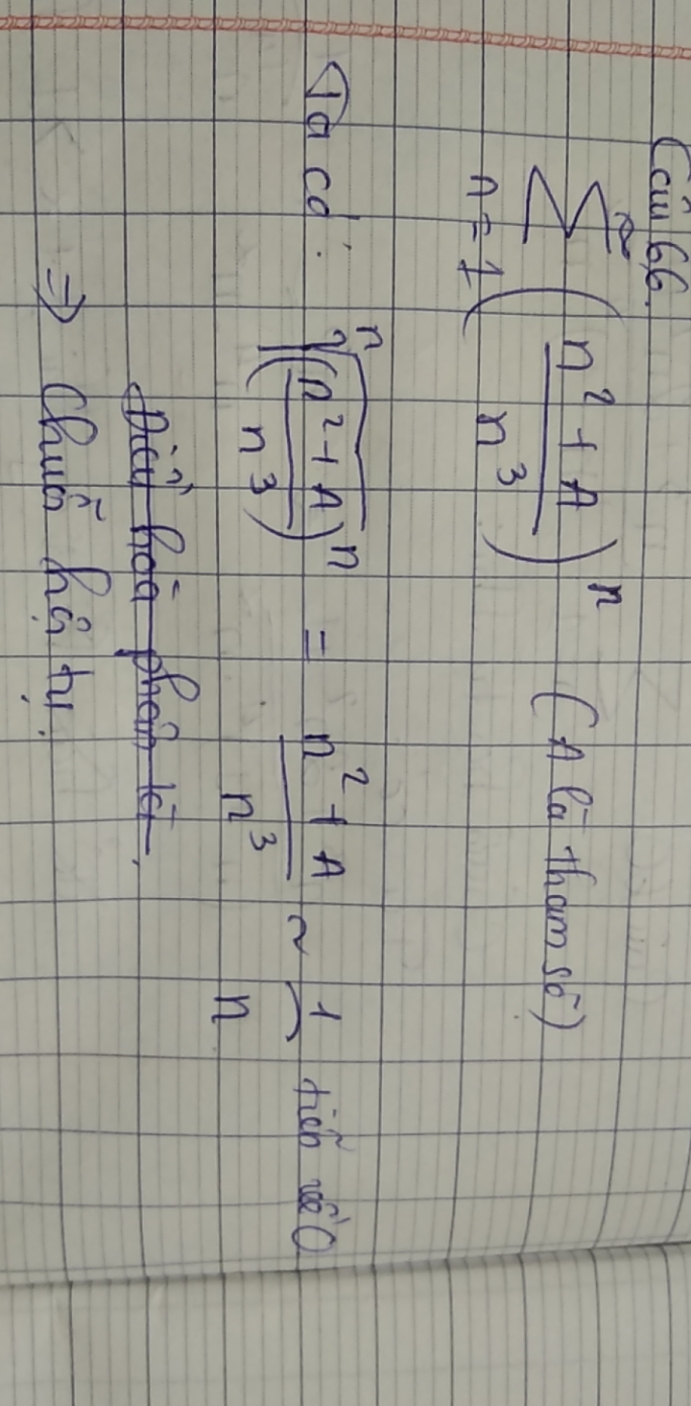 Câu 66.
∞
∑ (n² + A / n³)ⁿ (A là tham số)
n = 1
Ta có: ⁿ√(n² + A / n³)ⁿ = n² + A / n³ ~ 1 / n tiến về 0
Điều hoà phân kì.
⇒ Chuỗi hội tụ.